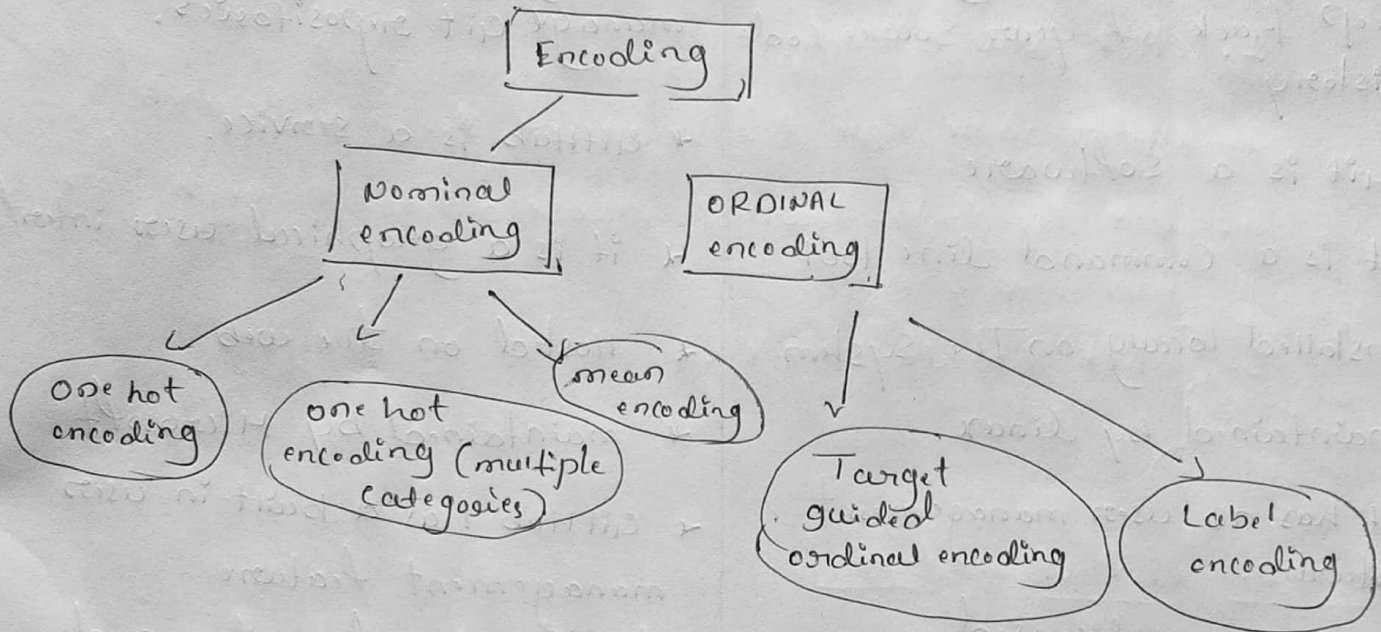 Encoding
Nominal
encoding
ORDINAL
encoding
One hot
encoding
one hot
encoding (multiple
categories)
mean
encoding
Target
guided
ordinal encoding
Label
encoding